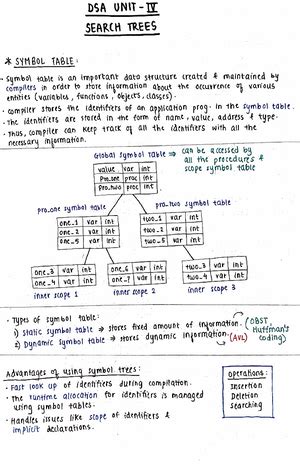 DSA UNIT - IV
SEARCH TREES
* SYMBOL TABLE:
• Symbol table is an important data structure created & maintained by
compilers in order to store information about the occurrence of various
entities (variables, functions, objects, classes).
• compiler stores the identifiers of an application prog. in the symbol table.
• The identifiers are stored in the form of name, value, address & type.
• Thus, compiler can keep track of all the identifiers with all the
necessary information.
Global symbol table ⇒ can be accessed by
all the procedures &
scope symbol table
value var int
Pro_one proc int
Pro_two proc int
pro_one symbol table pro_two symbol table
one_1 var int two_1 var int
one_2 var int two_2 var int
one_5 var int two_5 var int
one_3 var int one_6 var int two_3 var int
one_4 var int one_7 var int two_4 var int
inner scope 1 inner scope 2 inner scope 3
• Types of symbol table:
1) Static symbol table ⇒ stores fixed amount of information. (OBST,
Huffman's
coding)
2) Dynamic symbol table ⇒ stores dynamic information. (AVL)
Advantages of using symbol trees:
• Fast look up of identifiers during compilation.
• The runtime allocation for identifiers is managed
using symbol tables.
• Handles issues like scope of identifiers &
implicit declarations.
Operations:
Insertion
Deletion
Searching